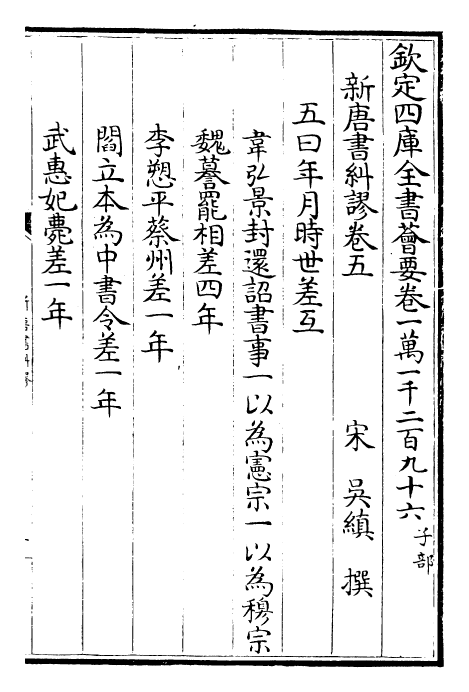 欽定四庫全書薈要卷一萬一千二百九十六 子部
新唐書糾謬卷五
宋 吳縝 撰
五曰年月時世差互
韋弘景封還詔書事一以為憲宗一以為穆宗
魏謩罷相差四年
李愬平蔡州差一年
閻立本為中書令差一年
武惠妃薨差一年